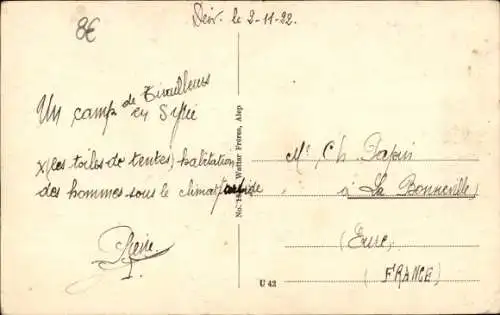 8€
Deir. le 2-11-22.
Un camp de Tirailleurs
en Syrie
x(les toiles de tentes) habitation
des hommes sous le climat
Pierre
No. Wattar Frères, Alep
U 42
Mr. Ch. Papin
à La Bonneville
(Eure)
(FRANCE)